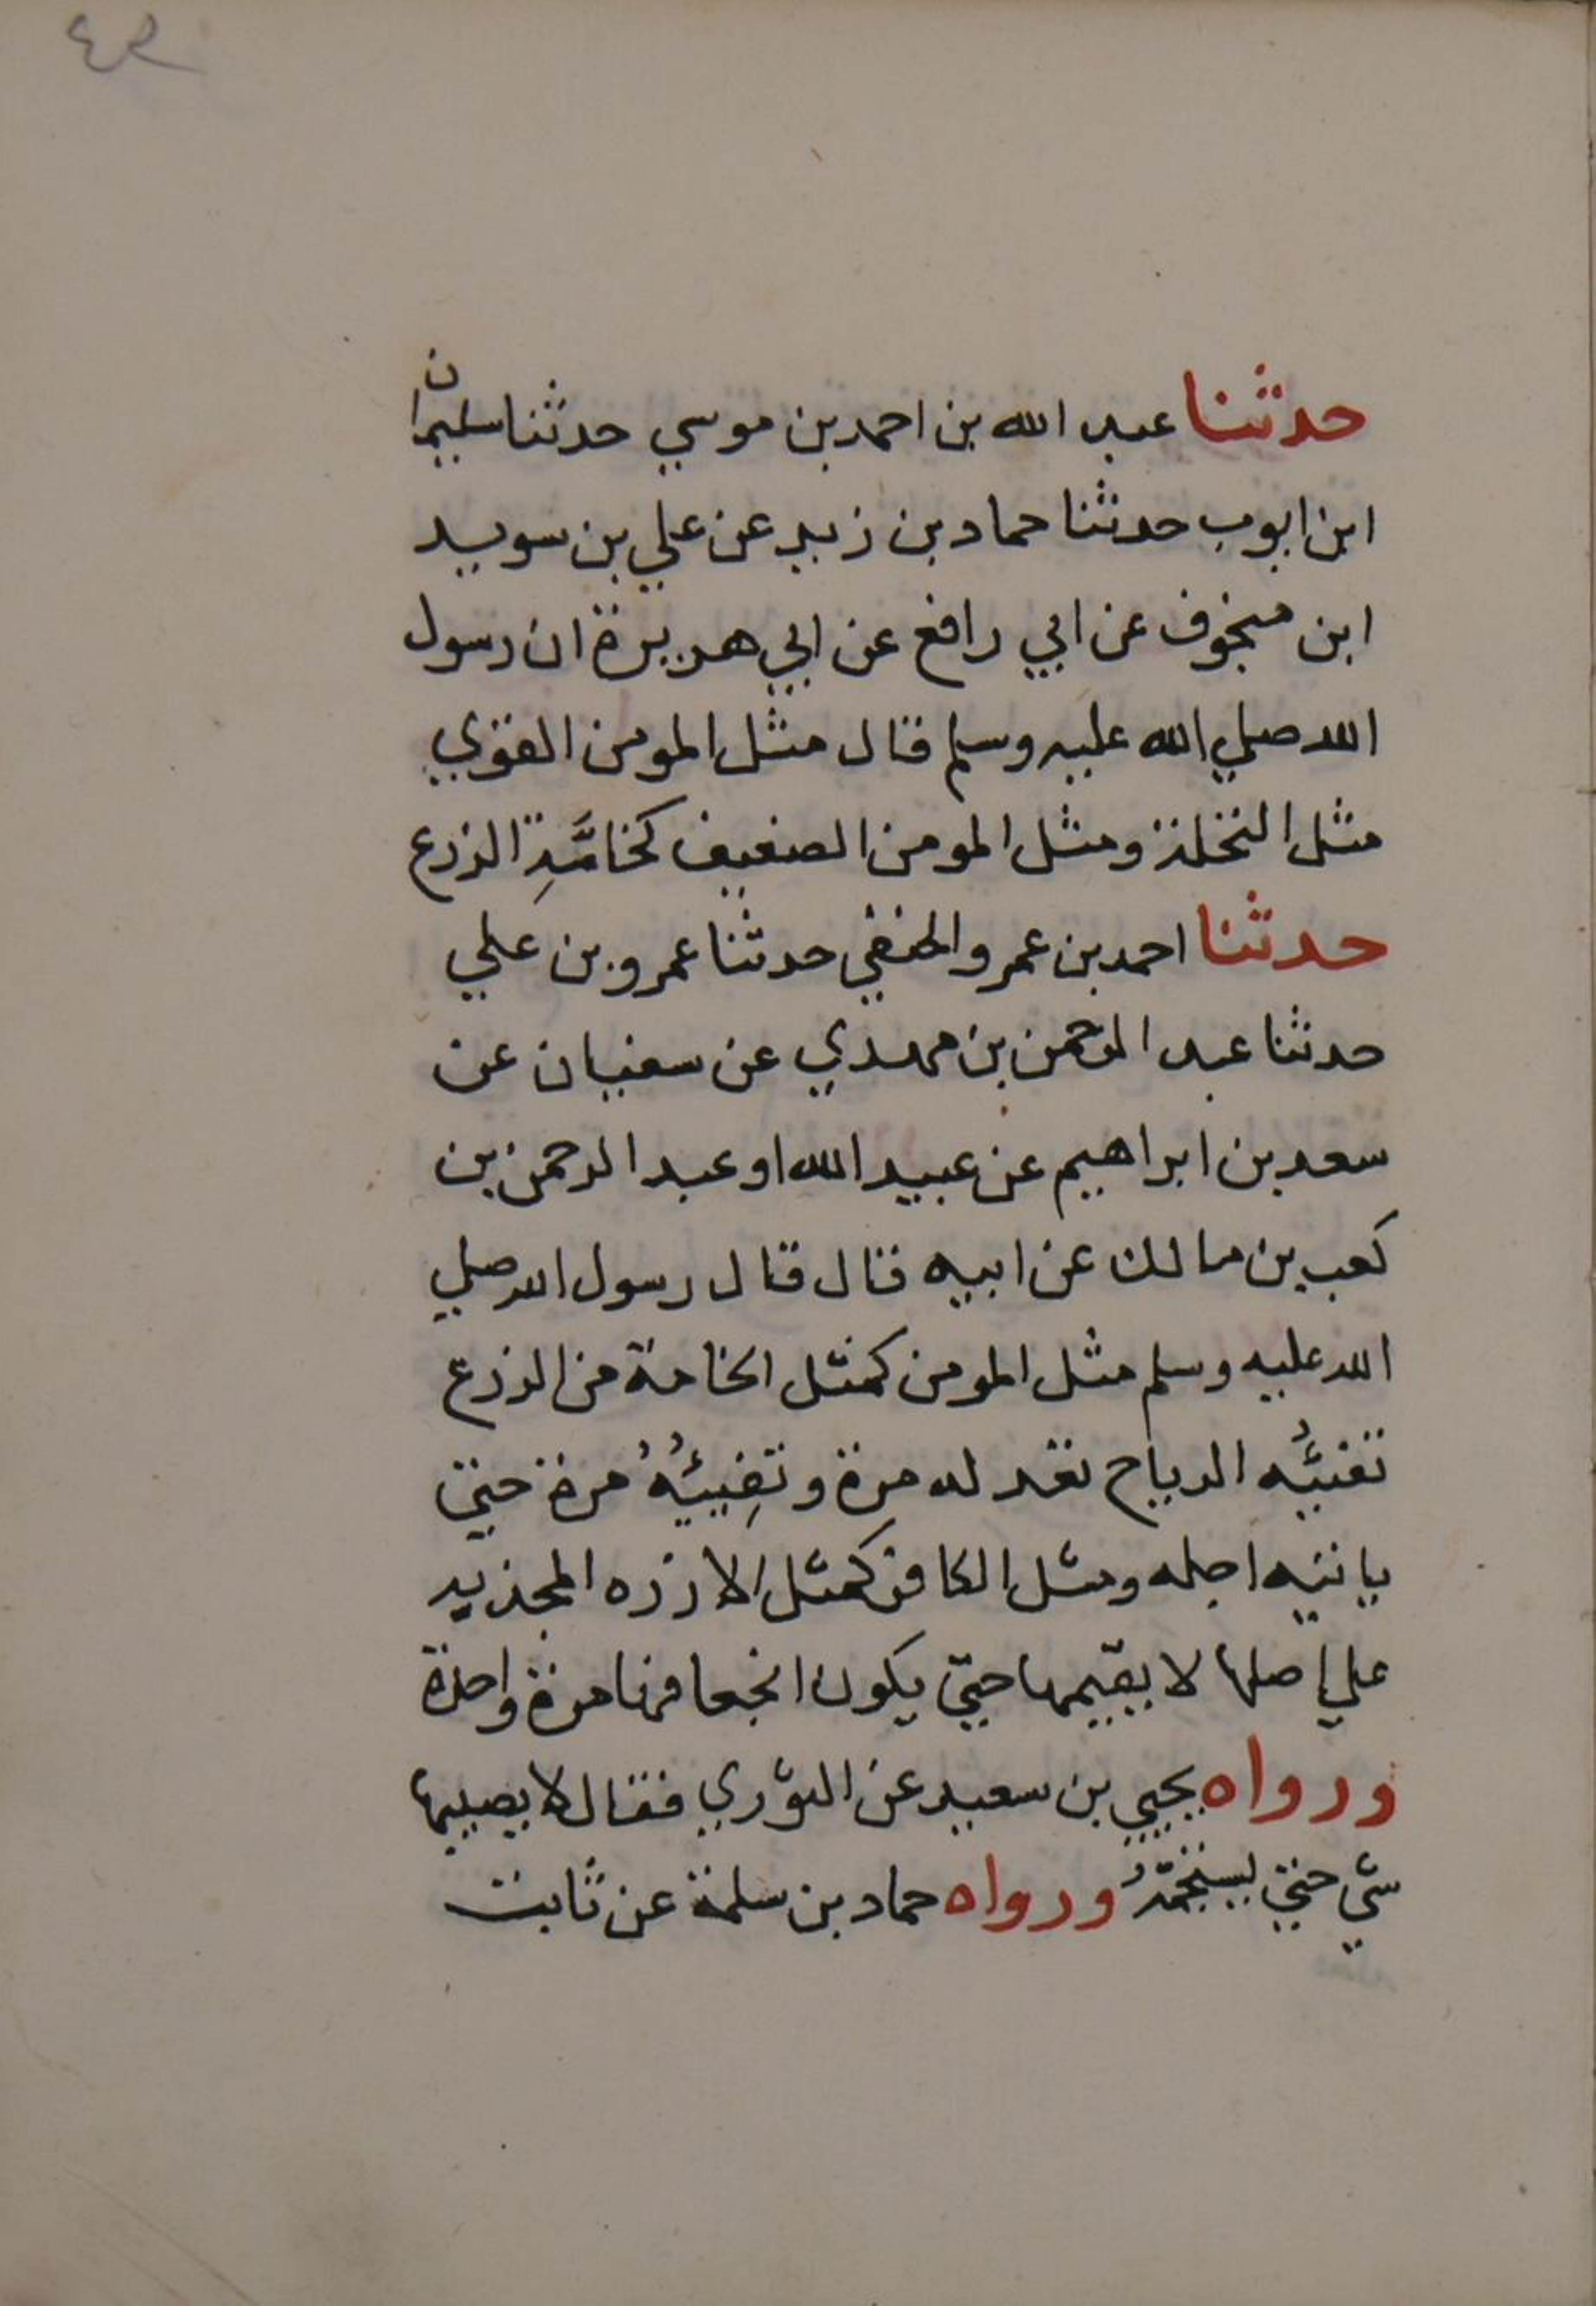 حدثنا عبد الله بن احمد بن موسي حدثنا سليمان
ابن ايوب حدثنا حماد بن زيد عن علي بن سويد
ابن منجوف عن ابي رافع عن ابي هريرة ان رسول
الله صلي الله عليه وسلم قال مثل المومن القوي
مثل النخلة ومثل المومن الضعيف كخامَّةِ الزرع
حدثنا احمد بن عمرو الحنفي حدثنا عمرو بن علي
حدثنا عبد الرحمن بن مهدي عن سفيان عن
سعد بن ابراهيم عن عبيد الله او عبد الرحمن بن
كعب بن مالك عن ابيه قال قال رسول الله صلي
الله عليه وسلم مثل المومن كمثل الخامة من الزرع
تفيئُه الرياح تعدله مرة وتفِييئُهُ مرة حتي
ياتيه اجله ومثل الكافر كمثل الارزه المجذيه
علي اصلها لا يقيمها حتي يكون انجعافها مرة واحدة
ورواه يحيي بن سعيد عن الثوري فقال لا يصيبها
شي حتي ورواه حماد بن سلمة عن ثابت